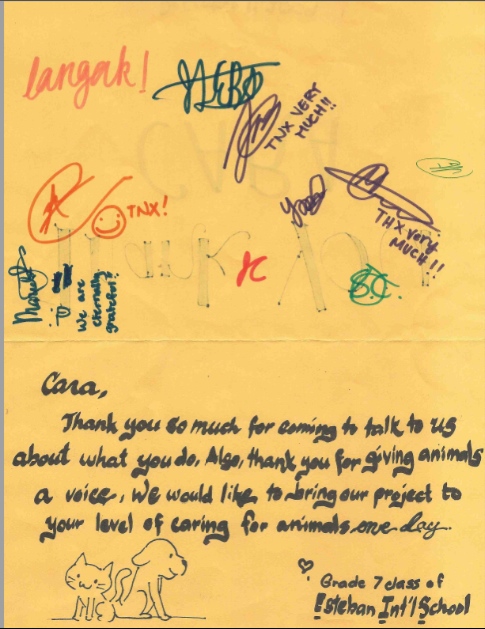 langak!
TNX VERY
MUCH!!
TNX!
THX Very
MUCH!!
We are
eternally
grateful!
Thank You
Cara,
Thank you so much for coming to talk to us
about what you do. Also, thank you for giving animals
a voice. We would like to bring our project to
your level of caring for animals one day.
Grade 7 class of
Esteban Int'l School